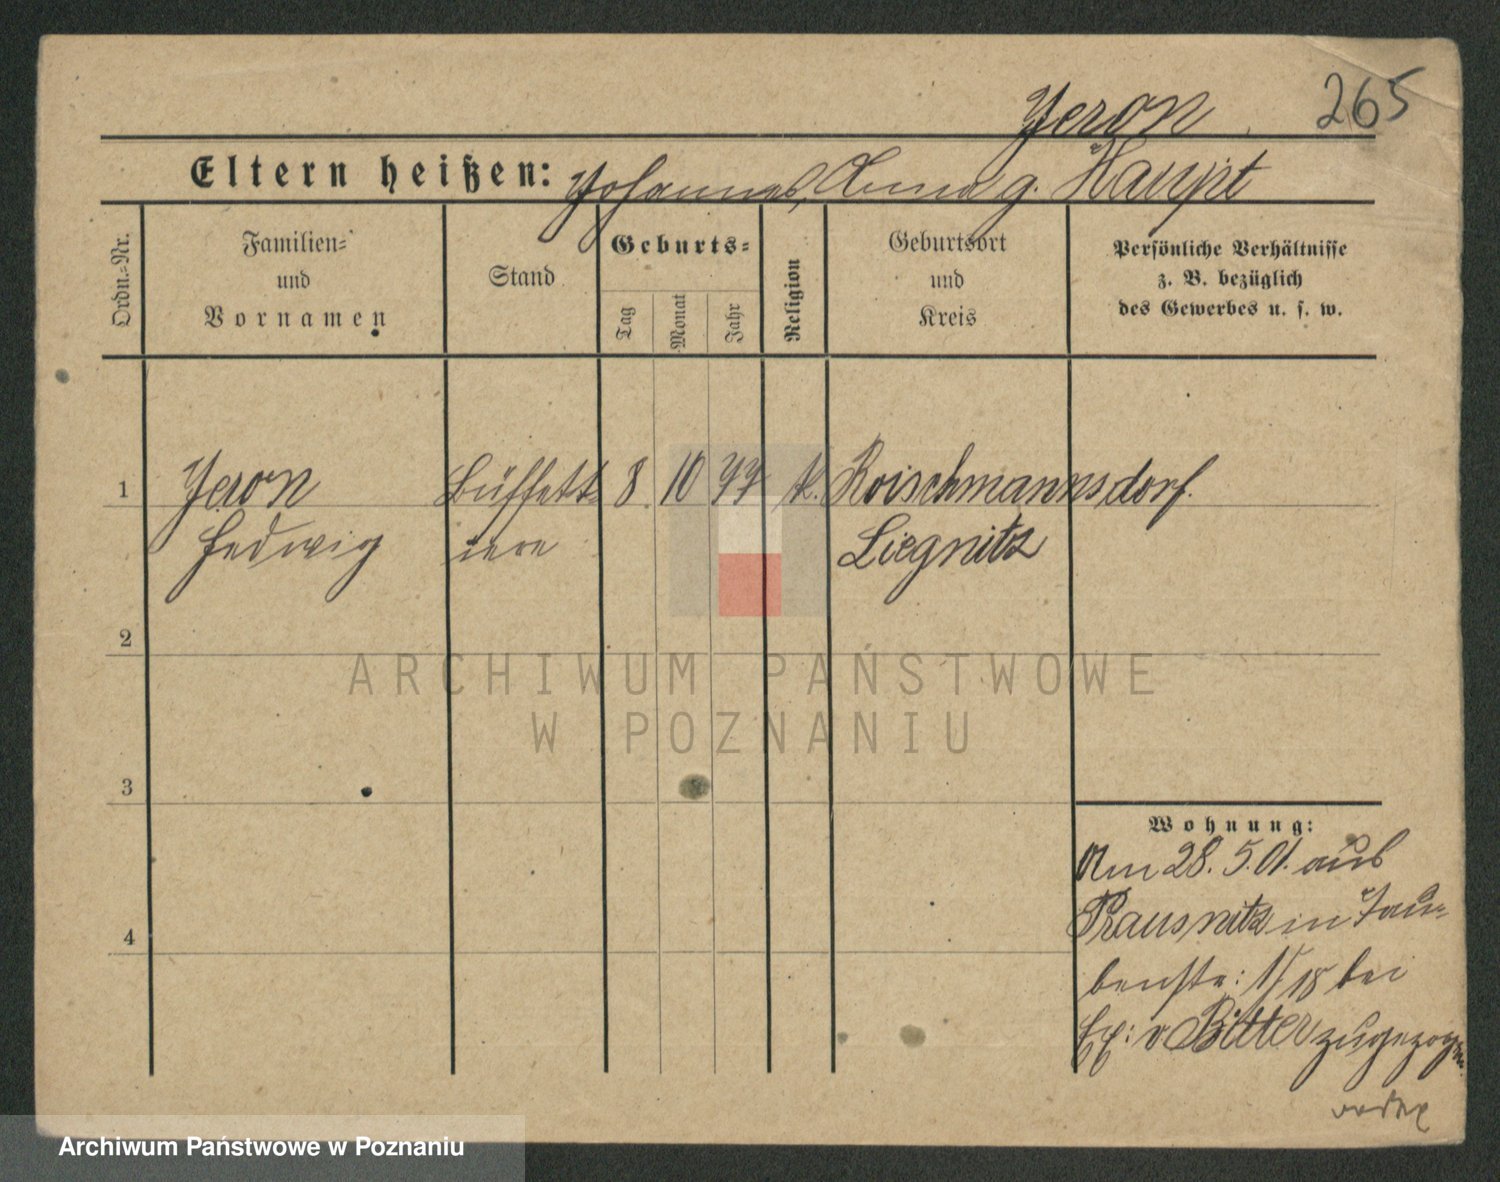 Jeron 265
Eltern heißen: Johannes, Anna g. Haupt
Ordn.=Nr.
Familien=
und
Vornamen
Stand
Geburts=
Tag
Monat
Jahr
Religion
Geburtsort
und
Kreis
Persönliche Verhältnisse
z. B. bezüglich
des Gewerbes u. s. w.
1 Jeron Büffett= 8. 10 77 k. Roischmannsdorf.
Hedwig iere Liegnitz
2
ARCHIWUM PAŃSTWOWE
W POZNANIU
3
Wohnung:
Am 28.5.01. aus
Prausnitz in Tau=
4
benstr: 17/18 bei
v Bitter zugezogen.
Archiwum Państwowe w Poznaniu